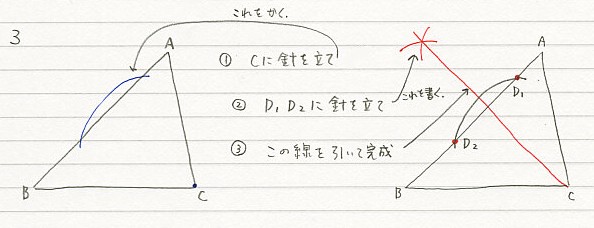 3
これをかく.
A
B
C
① Cに針を立て
② D₁ D₂に針を立て
これを書く.
③ この線を引いて完成
A
D₁
D₂
B
C